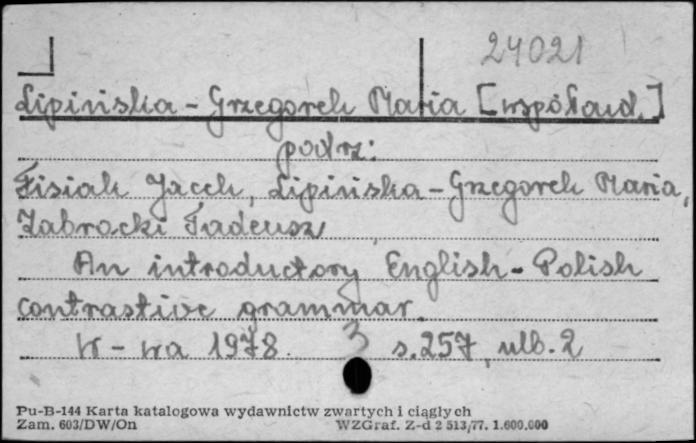 24021
Lipińska-Grzegorek Maria [współaut.]
podrz:
Fisiak Jacek, Lipińska-Grzegorek Maria,
Zabrocki Tadeusz
An introductory English-Polish
contrastive grammar.
W-wa 1978. 3 s.257, nlb.2
Pu-B-144 Karta katalogowa wydawnictw zwartych i ciągłych
Zam. 603/DW/On WZGraf. Z-d 2 513/77. 1.600.000